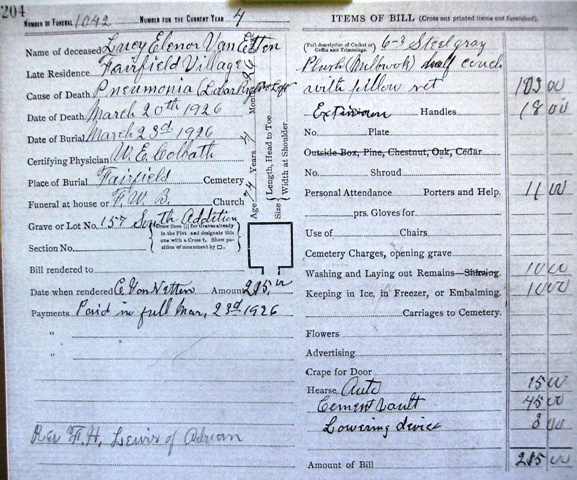 204
NUMBER OF FUNERAL 1042 NUMBER FOR THE CURRENT YEAR 4
Name of deceased Lucy Elenor Van Etten
Late Residence Fairfield Village
Cause of Death Pneumonia Lobar
Date of Death March 20th 1926
Date of Burial March 23d 1926
Certifying Physician W. E. Colbath
Place of Burial Fairfield Cemetery
Funeral at house or F. W. B. Church
Grave or Lot No. 157 South Addition
Draw lines for Graves already in the Plot, and designate this one with a Cross †. Show position of monument by □.
Section No.
Bill rendered to
Date when rendered C VanNetten Amount 285.00
Payments Paid in full Mar, 23rd 1926
"
"
Rev F. H. Lewis of Adrian
Age 74 Years Months
Size Length, Head to Toe
Width at Shoulder
ITEMS OF BILL (Cross out printed items not furnished).
(Full description of Casket or Coffin and Trimmings. 6-3 Steel gray
Plush couch
with pillow set 183 00
Extension Handles 18 00
No. Plate
Outside Box, Pine, Chestnut, Oak, Cedar
No. Shroud
Personal Attendance Porters and Help. 11 00
prs. Gloves for
Use of Chairs.
Cemetery Charges, opening grave
Washing and Laying out Remains—Shaving. 10 00
Keeping in Ice, in Freezer, or Embalming. 10 00
Carriages to Cemetery.
Flowers
Advertising
Crape for Door
Hearse Auto 15 00
Cement Vault 45 00
Lowering device 3 00
Amount of Bill 285 00